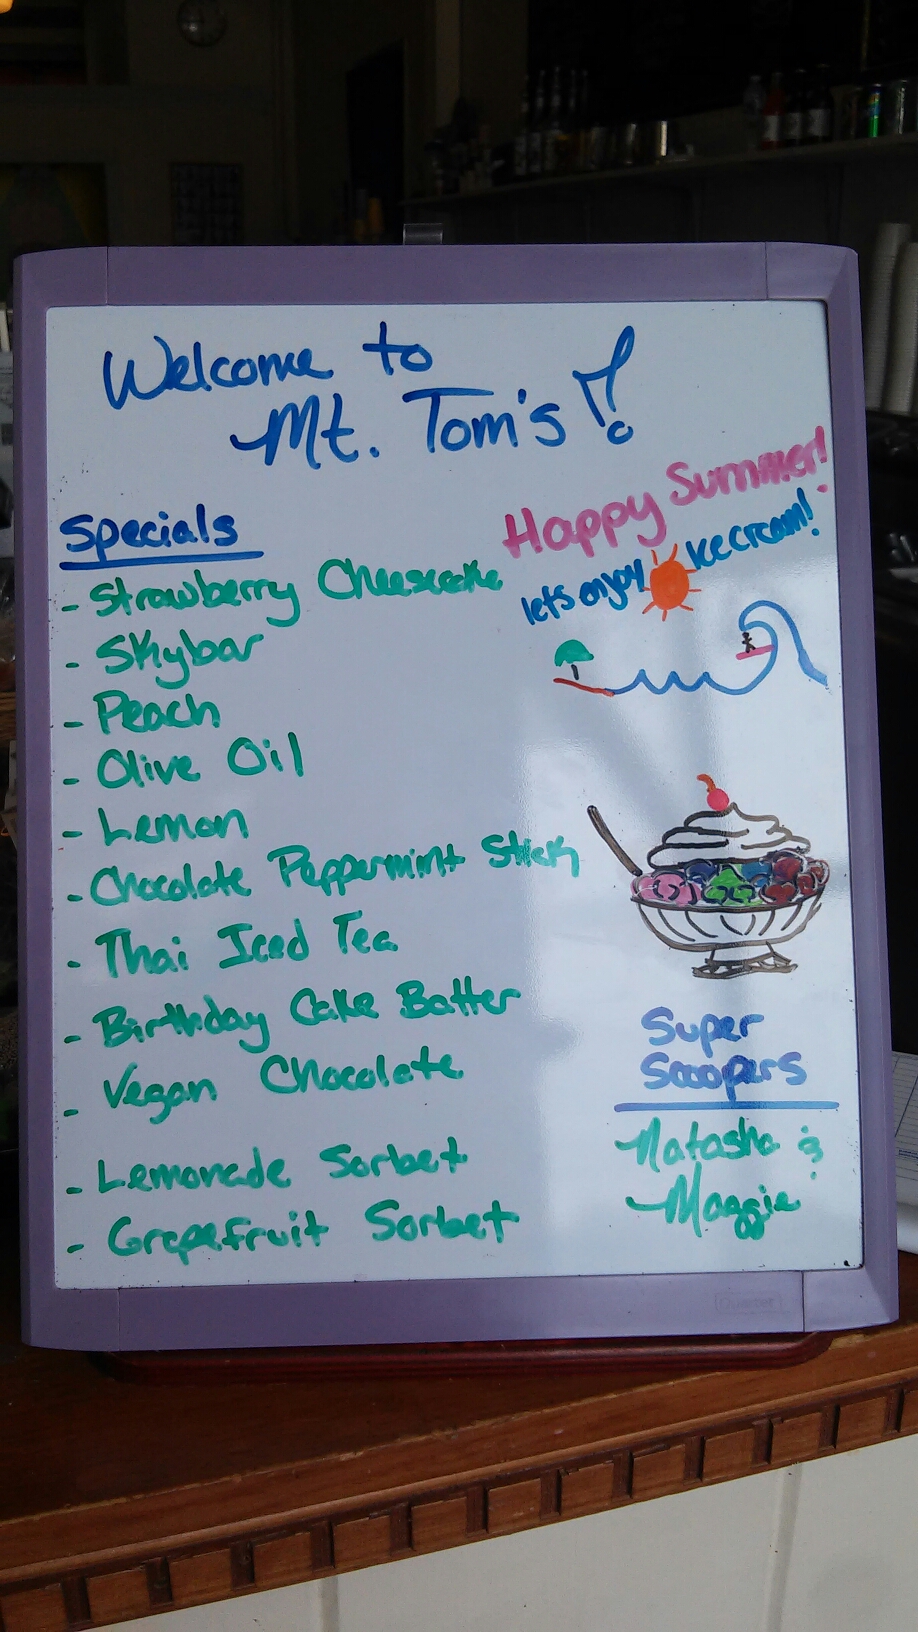 Welcome to
Mt. Tom's!
Specials
- Strawberry Cheesecake
- Skybar
- Peach
- Olive Oil
- Lemon
- Chocolate Peppermint Stick
- Thai Iced Tea
- Birthday Cake Batter
- Vegan Chocolate
- Lemonade Sorbet
- Grapefruit Sorbet
Happy Summer!
lets enjoy ice cream!
Super
Scoopers
Natasha &
Maggie
Quartet